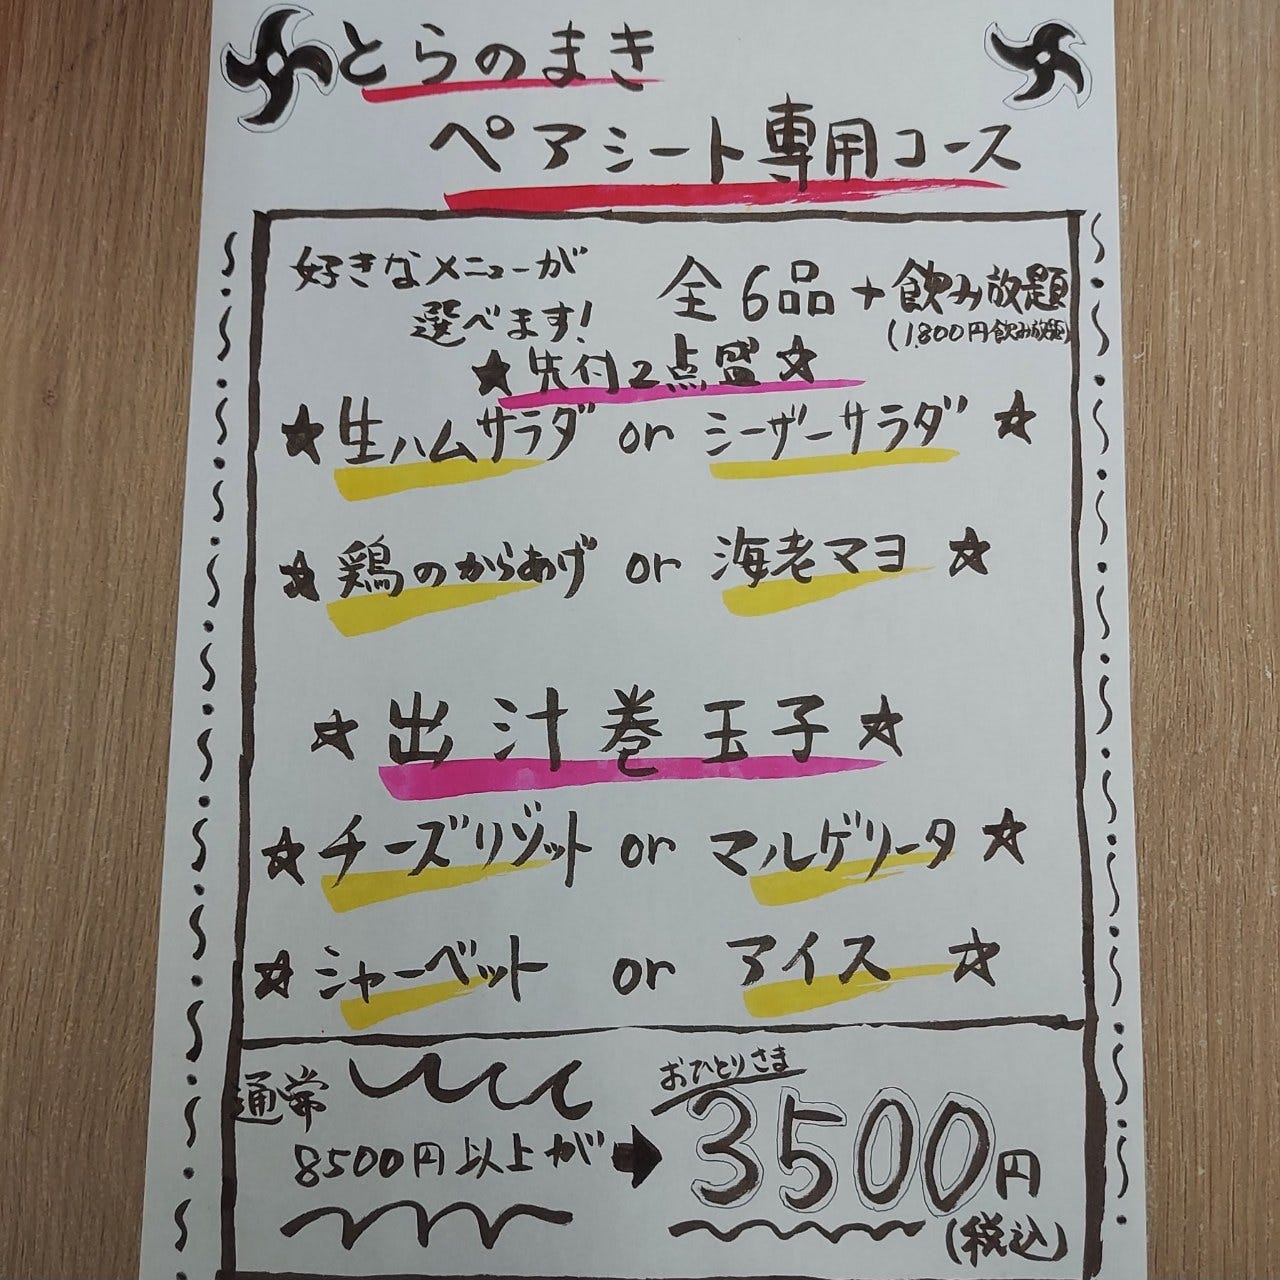 とらのまき
ペアシート専用コース
好きなメニューが
選べます!
全6品+飲み放題
(1,800円飲み放題)
★先付2点盛★
★生ハムサラダ or シーザーサラダ★
★鶏のからあげ or 海老マヨ★
★出汁巻玉子★
★チーズリゾット or マルゲリータ★
★シャーベット or アイス★
通常
8500円以上が➡
おひとりさま
3500円
(税込)